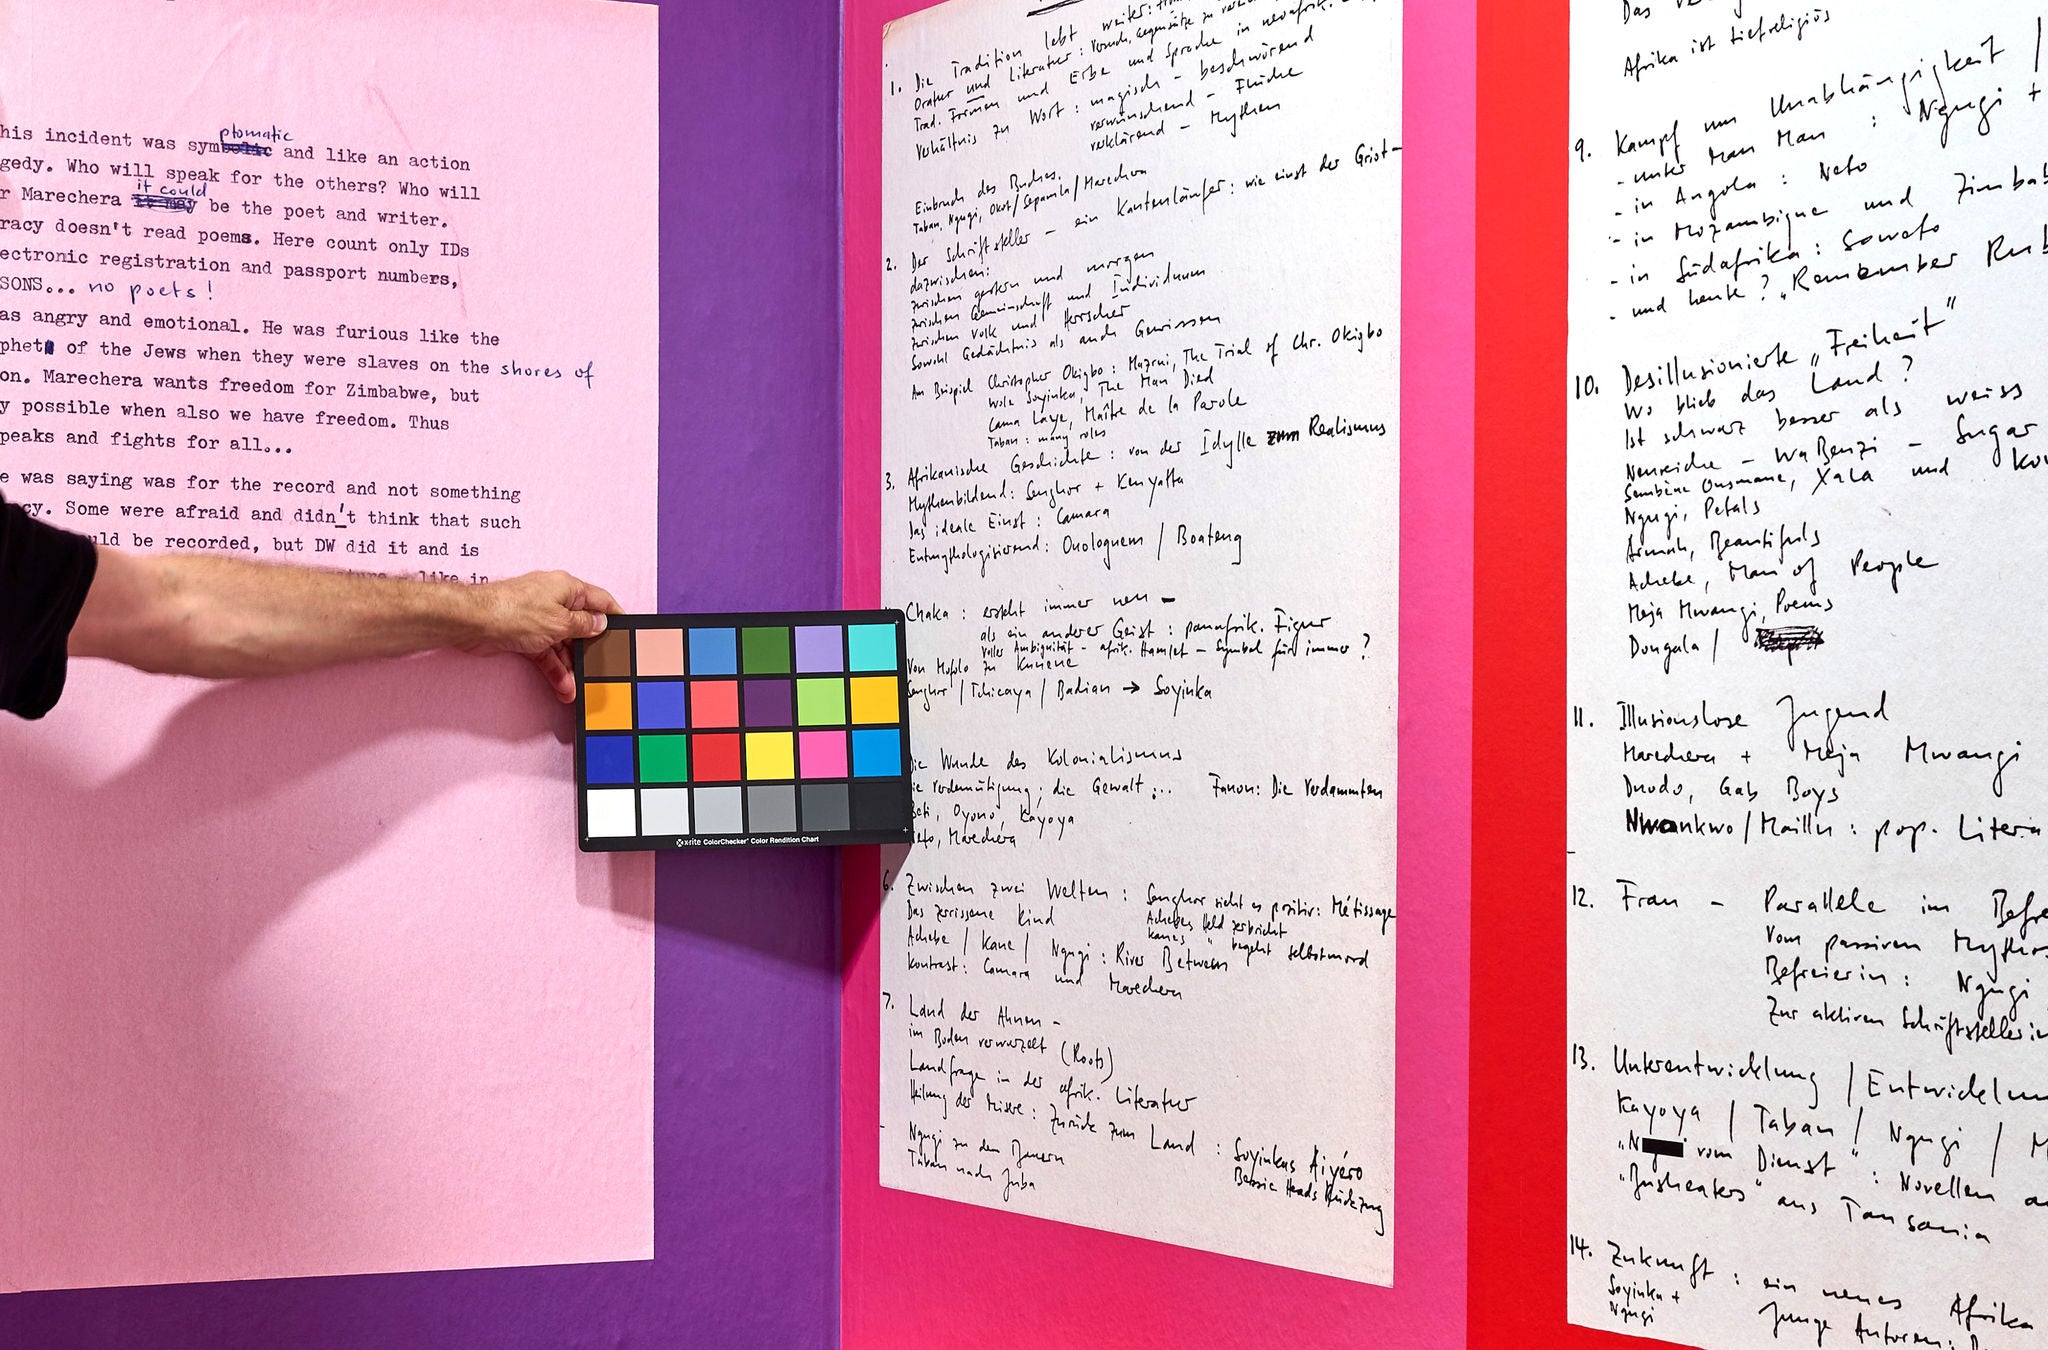 his incident was symptomatic and like an action
gedy. Who will speak for the others? Who will
r Marechera it could be the poet and writer.
racy doesn't read poems. Here count only IDs
ectronic registration and passport numbers,
SONS... no poets!
as angry and emotional. He was furious like the
phet of the Jews when they were slaves on the shores of
on. Marechera wants freedom for Zimbabwe, but
y possible when also we have freedom. Thus
peaks and fights for all...
e was saying was for the record and not something
cy. Some were afraid and didn't think that such
uld be recorded, but DW did it and is
like in
x-rite ColorChecker Color Rendition Chart
1. Die Tradition lebt weiter:
Oratur und Literatur: Versuch, Gegensätze zu
Trad. Formen und Erbe und Sprache in neoafrik.
Verhältnis zu Wort: magisch - beschwörend
verwünschend - Flüche
verklärend - Mythen
Einbruch des Buches.
Taban, Ngugi, Okot/Sepamla/Marechera
2. Der Schriftsteller - ein Kantenläufer: wie einst der Griot-
dazwischen:
zwischen gestern und morgen
zwischen Gemeinschaft und Individuum
zwischen Volk und Herrscher
Sowohl Gedächtnis als auch Gewissen
Am Beispiel Christopher Okigbo: Mazrui, The Trial of Chr. Okigbo
Wole Soyinka, The Man Died
Cama Laye, Maître de la Parole
Taban: many roles
3. Afrikanische Geschichte: von der Idylle zum Realismus
Mythenbildend: Senghor + Kenyatta
Das ideale Einst: Camara
Entmythologisierend: Ouologuem / Boateng
Chaka: ersteht immer neu -
als ein anderer Geist: panafrik. Figur
voller Ambiguität - afrik. Hamlet - Symbol für immer?
Von Mofolo zu Kunene
Senghor / Tchicaya / Badian → Soyinka
Die Wunde des Kolonialismus
ie Verdemütigung; die Gewalt ... Fanon: Die Verdammten
Beti, Oyono, Kayoya
Neto, Marechera
6. Zwischen zwei Welten: Senghor sieht es positiv: Métissage
Das zerrissene Kind Achebes Held zerbricht
Kanes " begeht Selbstmord
Achebe / Kane / Ngugi: River Between
Kontrast: Camara und Marechera
7. Land der Ahnen -
im Boden verwurzelt (Roots)
Landfrage in der afrik. Literatur
Heilung der Misere: Zurück zum Land: Soyinkas Aiyéro
Bessie Heads
Ngugi zu den Bauern
Taban nach Juba
Das
Afrika ist tiefreligiös
9. Kampf um Unabhängigkeit /
- unter Mau Mau: Ngugi +
- in Angola: Neto
- in Mozambique und Zimbab
- in Südafrika: Soweto
- und heute? "Remember Rub
10. Desillusionierte "Freiheit"
Wo blieb das Land?
Ist schwarz besser als weiss
Neureiche - WaBenzi - Sugar
Sembène Ousmane, Xala und
Ngugi, Petals
Armah, Beautifuls
Achebe, Man of People
Meja Mwangi, Poems
Dongala /
11. Illusionslose Jugend
Marechera + Meja Mwangi
Duodo, Gab Boys
Nwankwo/Maillu: pop. Litera
12. Frau - Parallele im Befre
Vom passiven Mythos
Befreierin: Ngugi
Zur aktiven Schriftstellerin
13. Unterentwicklung / Entwicklun
Kayoya / Taban / Ngugi / M
"N vom Dienst": Novellen a
aus Tansania
14. Zukunft: ein neues Afrika
Soyinka +
Ngugi
Junge Autoren: